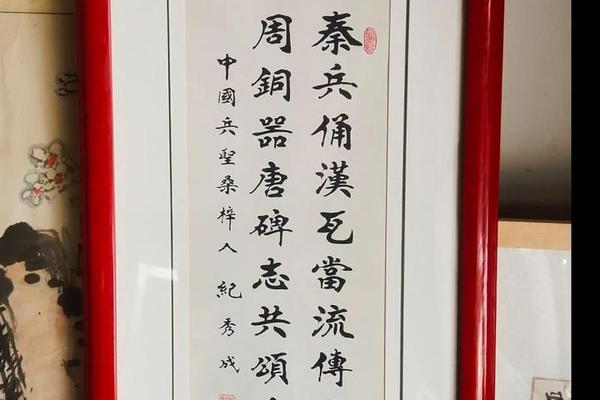 秦兵俑漢瓦當流傳
周銅器唐碑志共頌
中國兵聖桑梓人紀秀成